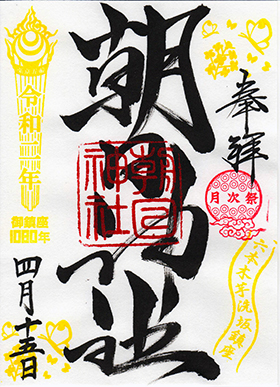 奉拝
月次祭
六本木芋洗坂鎮座
朝日神社
朝日神社
令和二年
御鎮座
1080年
四月十五日